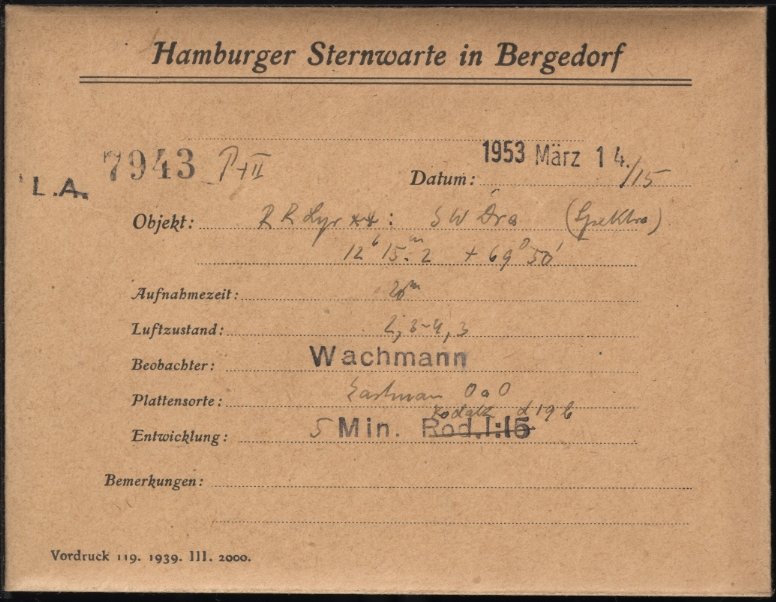 Hamburger Sternwarte in Bergedorf
7943 P+II
1953 März 14./15
L.A.
Datum:
Objekt: RR Lyr **: SW Dra (Spektra)
12h 15m.2 +69° 50'
Aufnahmezeit: 20m
Luftzustand: 2,3-4,3
Beobachter: Wachmann
Plattensorte: Eastman OaO
Kodak d19b
Entwicklung: 5 Min. Rod.1:15
Bemerkungen:
Vordruck 119. 1939. III. 2000.